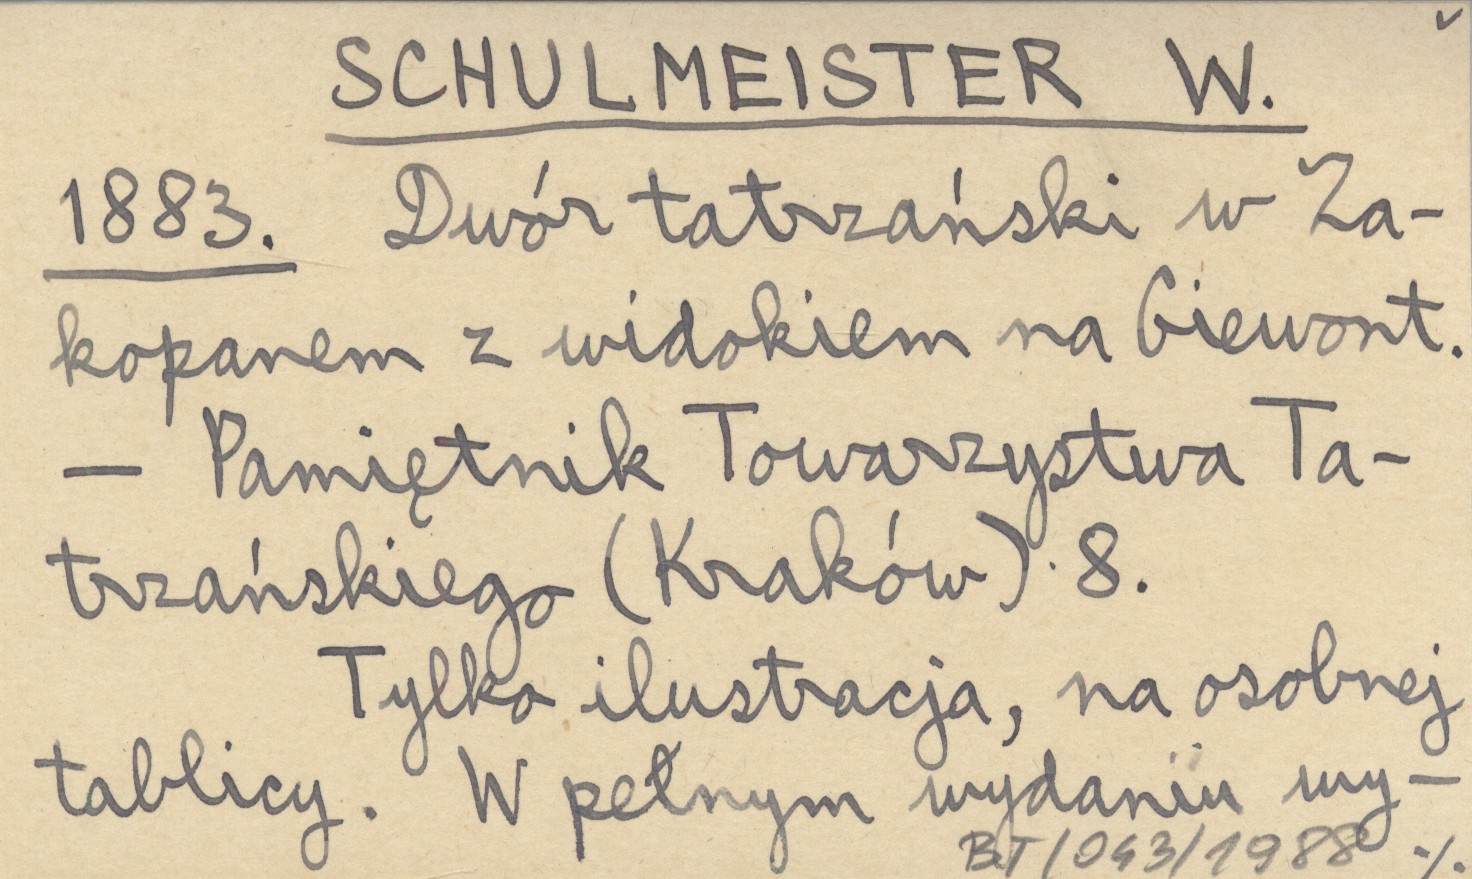 SCHULMEISTER W.
1883. Dwór tatrzański w Za-
kopanem z widokiem na Giewont.
— Pamiętnik Towarzystwa Ta-
trzańskiego (Kraków) 8.
Tylko ilustracja, na osobnej
tablicy. W pełnym wydaniu wy-
BT/043/1988 ./.